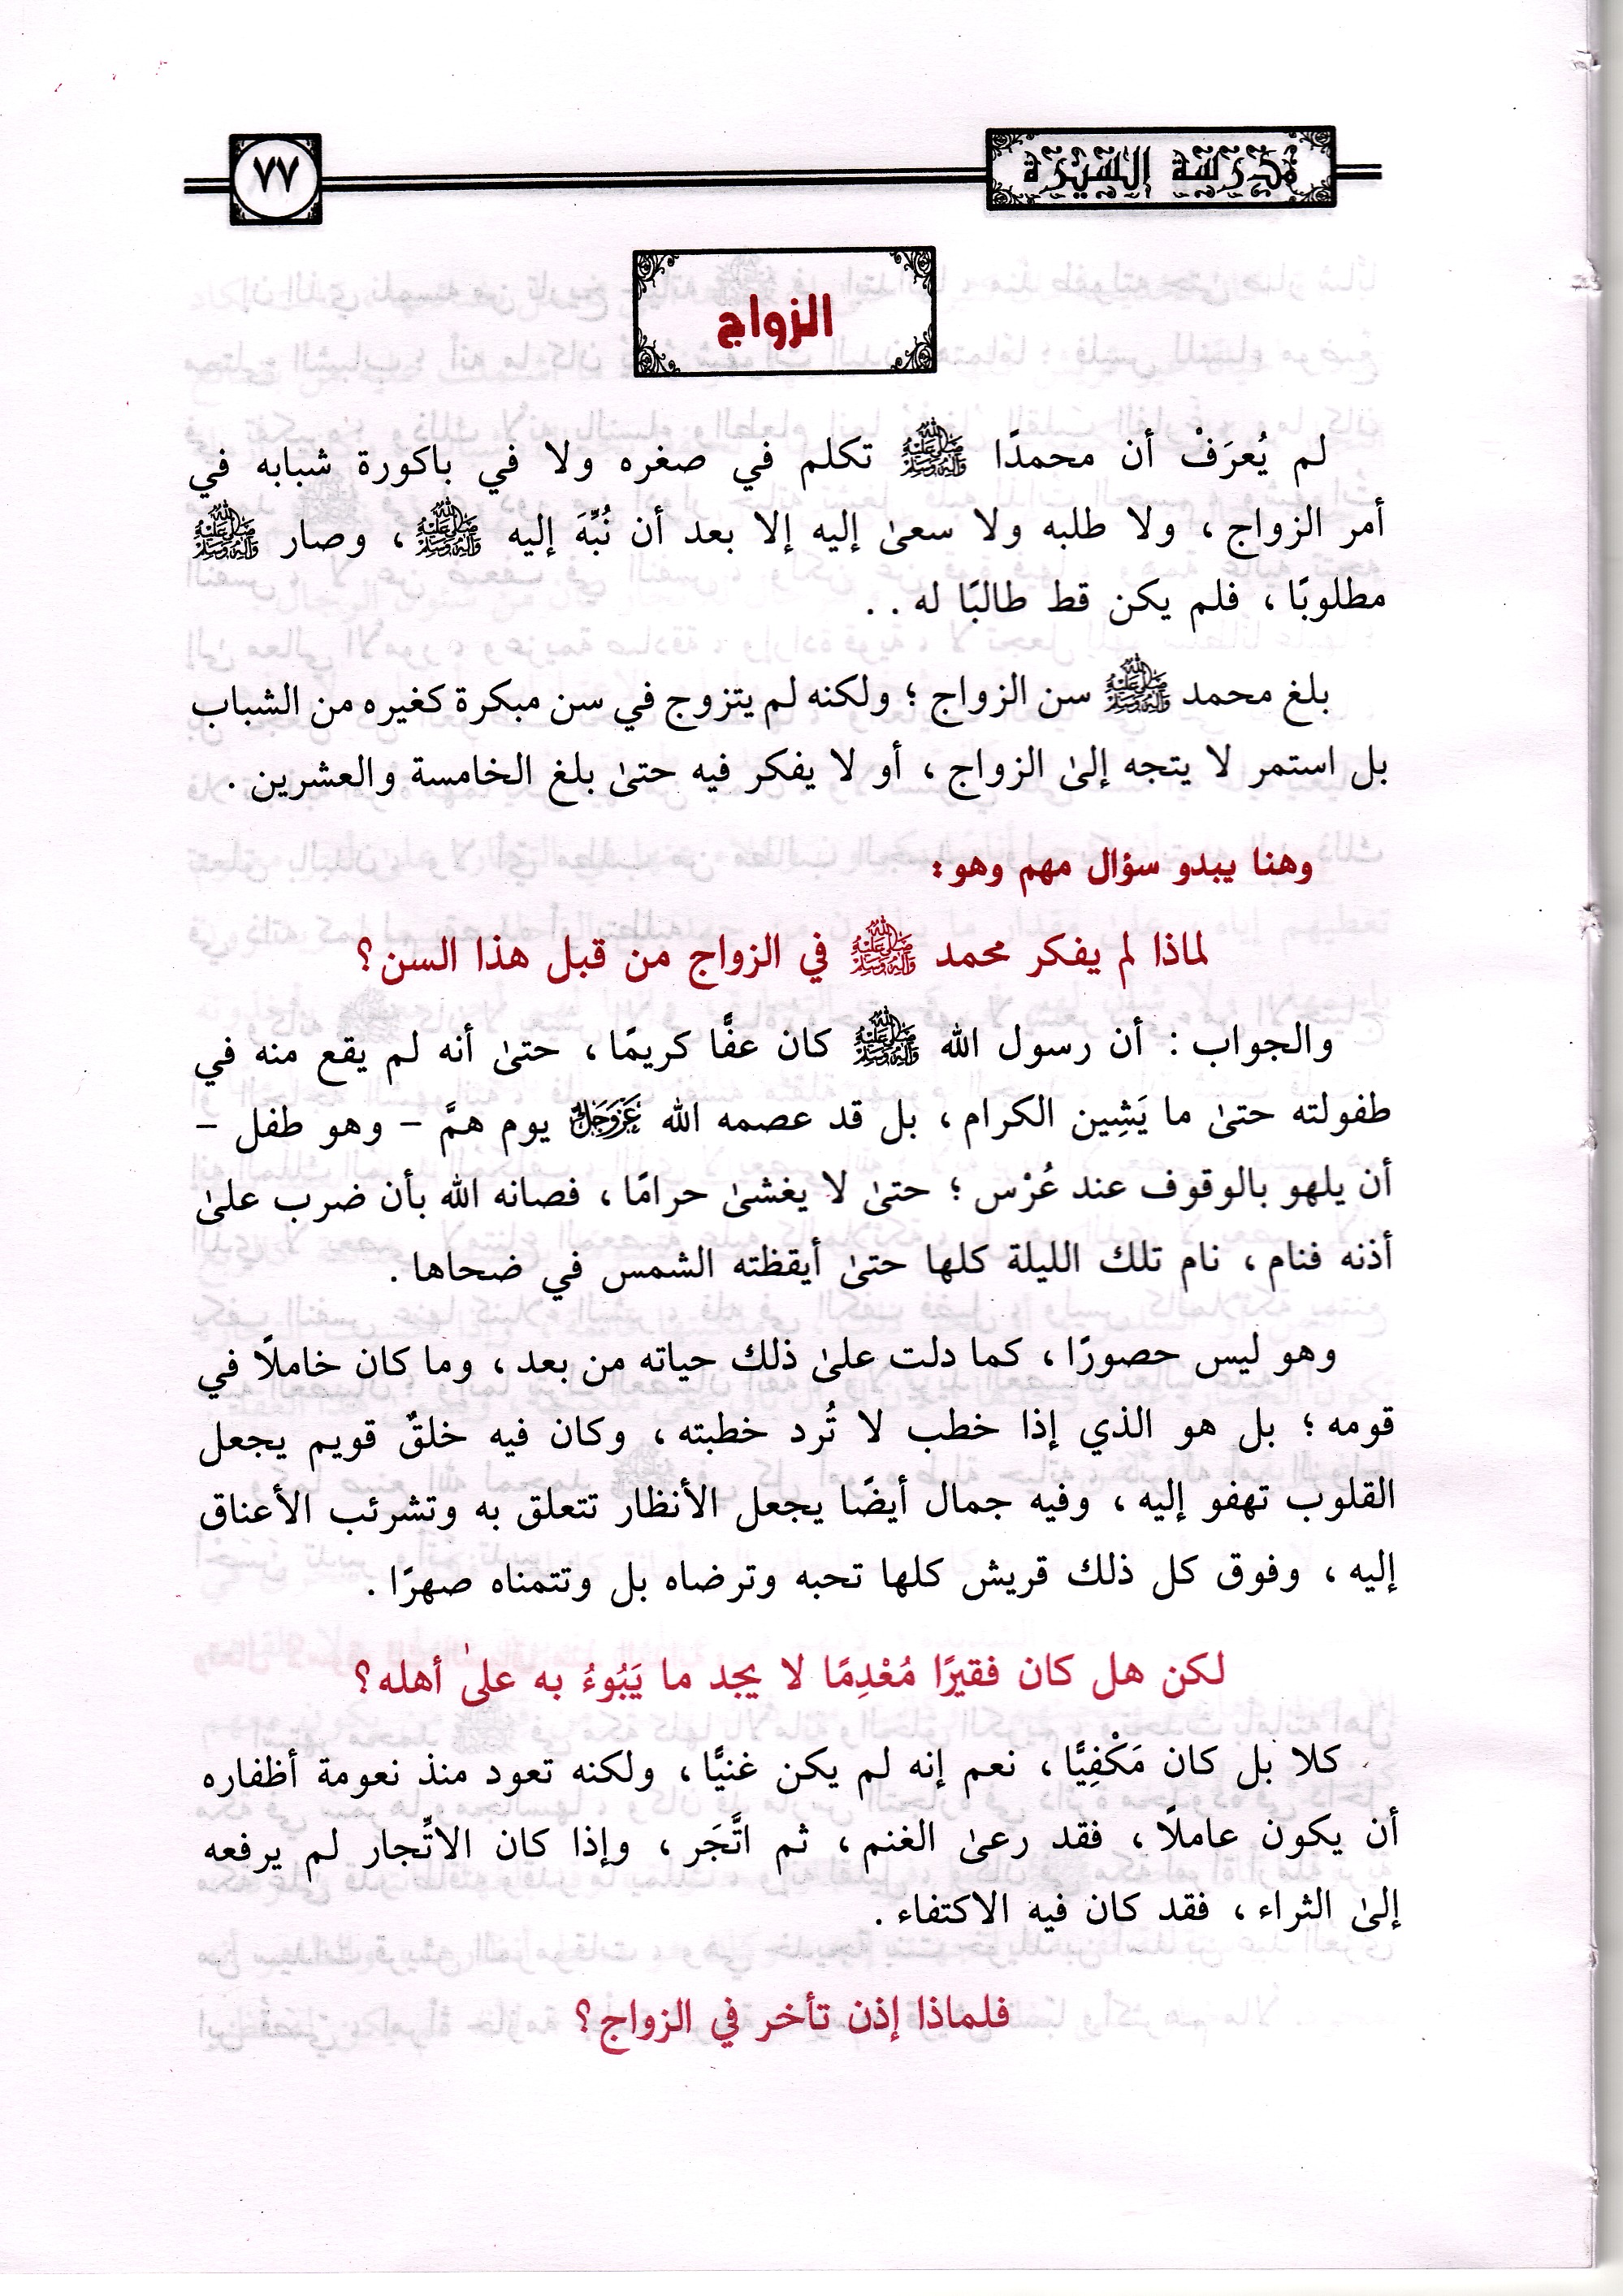 مدرسة السيرة
٧٧
الزواج
لم يُعرَفْ أن محمدًا ﷺ تكلم في صغره ولا في باكورة شبابه في
أمر الزواج ، ولا طلبه ولا سعىٰ إليه إلا بعد أن نُبِّهَ إليه ﷺ ، وصار ﷺ
مطلوبًا ، فلم يكن قط طالبًا له . .
بلغ محمد ﷺ سن الزواج ؛ ولكنه لم يتزوج في سن مبكرة كغيره من الشباب
بل استمر لا يتجه إلىٰ الزواج ، أو لا يفكر فيه حتىٰ بلغ الخامسة والعشرين .
وهنا يبدو سؤال مهم وهو:
لماذا لم يفكر محمد ﷺ في الزواج من قبل هذا السن؟
والجواب : أن رسول الله ﷺ كان عفًّا كريمًا ، حتىٰ أنه لم يقع منه في
طفولته حتىٰ ما يَشِين الكرام ، بل قد عصمه الله عَزَّوَجَلَّ يوم همَّ – وهو طفل –
أن يلهو بالوقوف عند عُرْس ؛ حتىٰ لا يغشىٰ حرامًا ، فصانه الله بأن ضرب علىٰ
أذنه فنام ، نام تلك الليلة كلها حتىٰ أيقظته الشمس في ضحاها .
وهو ليس حصورًا ، كما دلت علىٰ ذلك حياته من بعد ، وما كان خاملًا في
قومه ؛ بل هو الذي إذا خطب لا تُرد خطبته ، وكان فيه خلقٌ قويم يجعل
القلوب تهفو إليه ، وفيه جمال أيضًا يجعل الأنظار تتعلق به وتشرئب الأعناق
إليه ، وفوق كل ذلك قريش كلها تحبه وترضاه بل وتتمناه صهرًا .
لكن هل كان فقيرًا مُعْدِمًا لا يجد ما يَبُوءُ به علىٰ أهله؟
كلا بل كان مَكْفِيًّا ، نعم إنه لم يكن غنيًّا ، ولكنه تعود منذ نعومة أظفاره
أن يكون عاملًا ، فقد رعىٰ الغنم ، ثم اتَّجَر ، وإذا كان الاتِّجار لم يرفعه
إلىٰ الثراء ، فقد كان فيه الاكتفاء .
فلماذا إذن تأخر في الزواج؟